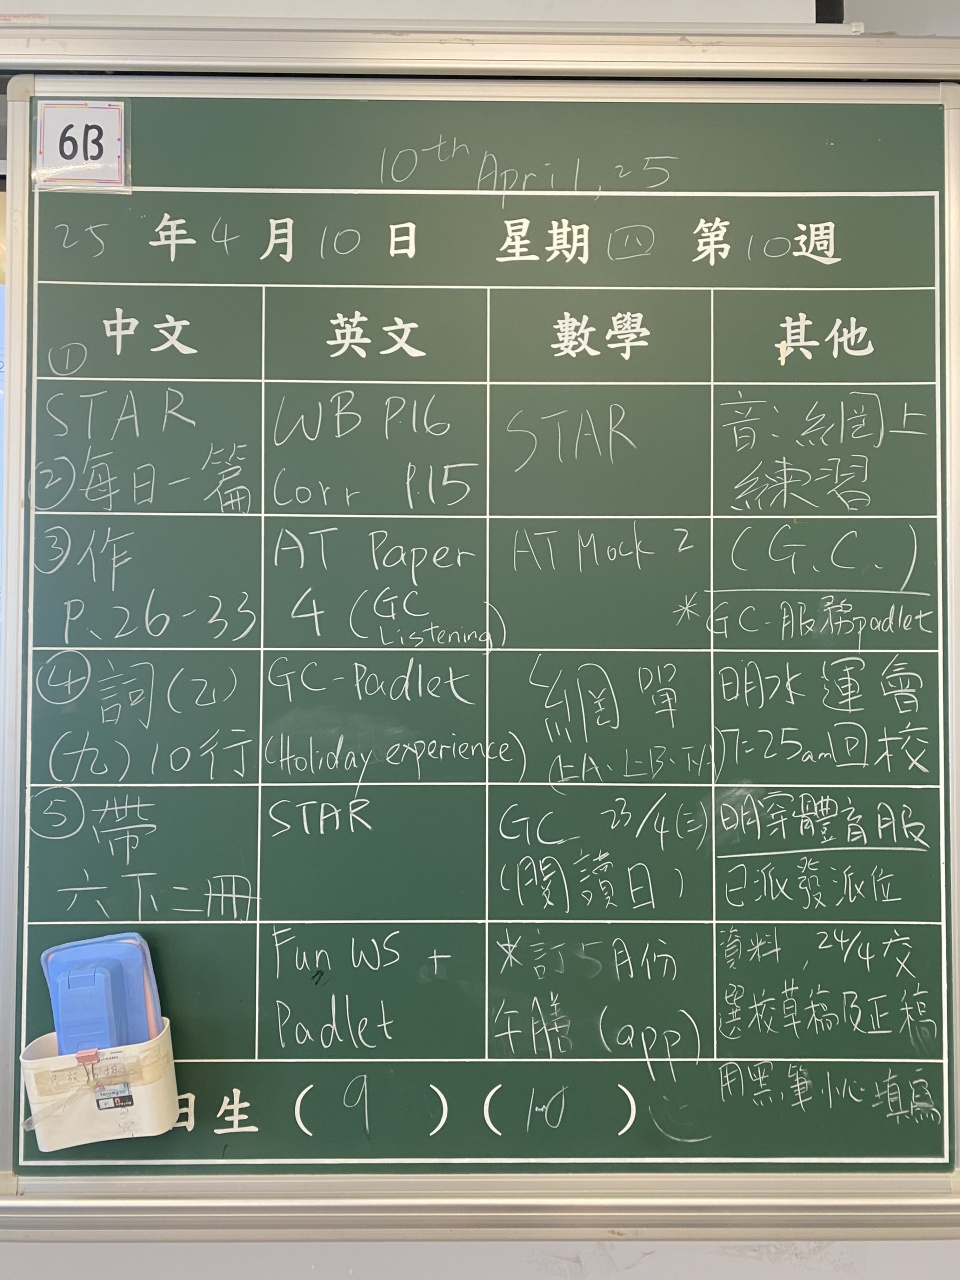 6B
10th April, 25
25 年 4 月 10 日 星期 四 第 10 週
中文
①
STAR
②每日一篇
③作
P.26-33
④詞(乙)
(九)10行
⑤帶
六下二冊
英文
WB P.16
Corr P.15
AT Paper
4 (GC
Listening)
GC-Padlet
(Holiday experience)
STAR
Fun WS +
Padlet
數學
STAR
AT Mock 2
網單
(上A、上B、下A)
GC 23/4(三)
(閱讀日)
*訂5月份
午膳 (app)
其他
音:網上
練習
(G.C.)
*GC-服務padlet
明水運會
7:25am回校
明穿體育服
已派發派位
資料,24/4交
選校草稿及正稿
用黑筆小心填寫
日生 (9) (10)